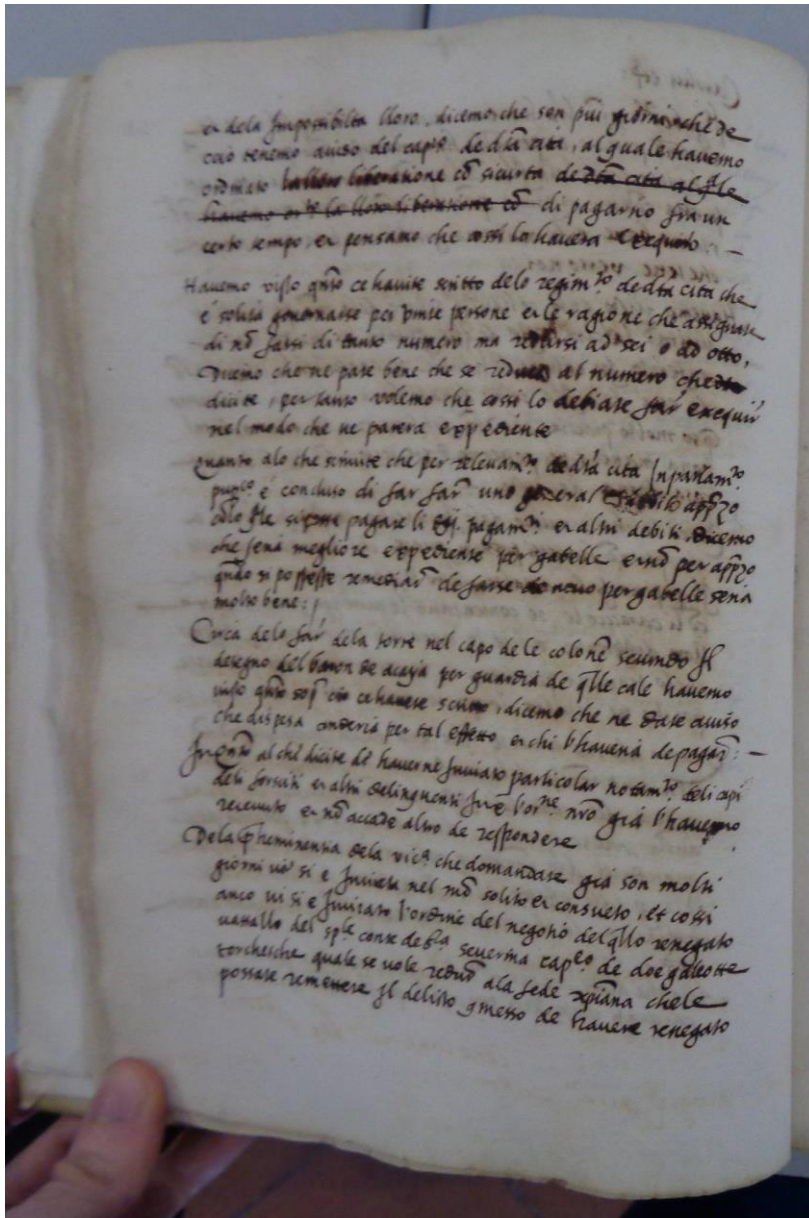 et dela Impossibilta lloro, dicemo che son più giorni nehè de
ciò tenemo auiso del cap.º de dtã cità, al quale havemo
ordinato la lloro liberatione cõ sicurtà de dtã cita al qle
havemo la lloro liberatione cõ di pagarno fra un
certo tempo, et pensamo che cossi lo havera exequito. —
Havemo visto qnto ce havite scritto delo regimto de dtã cita che
è solita governarse per vinte persone et le ragione che assignate
di nõ farsi di tanto numero ma redursi ad sei o ad otto,
Dicemo che ne pare bene che se reduca al numero che
dicite, per tanto volemo che cossi lo debiate far exequir
nel modo che ne parera expediente
Quanto alo che scrivite che per relevamto de dtã cita In parlamto
puco è concluso di far far uno general apprzo
pagare li pagamti et altri debiti, Dicemo
che serà megliore expediente per gabelle et nõ per apprzo
qndo si potesse remediar de farse de novo per gabelle seria
molto bene:
Circa delo far dela torre nel capo dele colone secundo Il
desegno del baron de acaya per guardia de qlle cale havemo
visto qnto sop ciò ce havete scritto, dicemo che ne date auiso
che dispesa anderia per tal effetto et chi l'haverà de pagar: —
In qnto al che dicite de haverne Inviato particolar notamto deli capi
deli forsciti et altri delinquenti Iux.ᵉ l'orne nrõ già l'havemo
recevuto et nõ accade altro de respondere
Dela pheminentia dela vica che domandate già son molti
giorni vi si è Inviata nel mõ solito et consueto, et cossi
anco vi si è Inviato l'ordine del negotio del qllo renegato
vassallo del sple conte de sta severina capeo de doe galeotte
torchesche quale se vole redur ala fede xpiana che le
possate remettere Il delitto cmesso de havere renegato